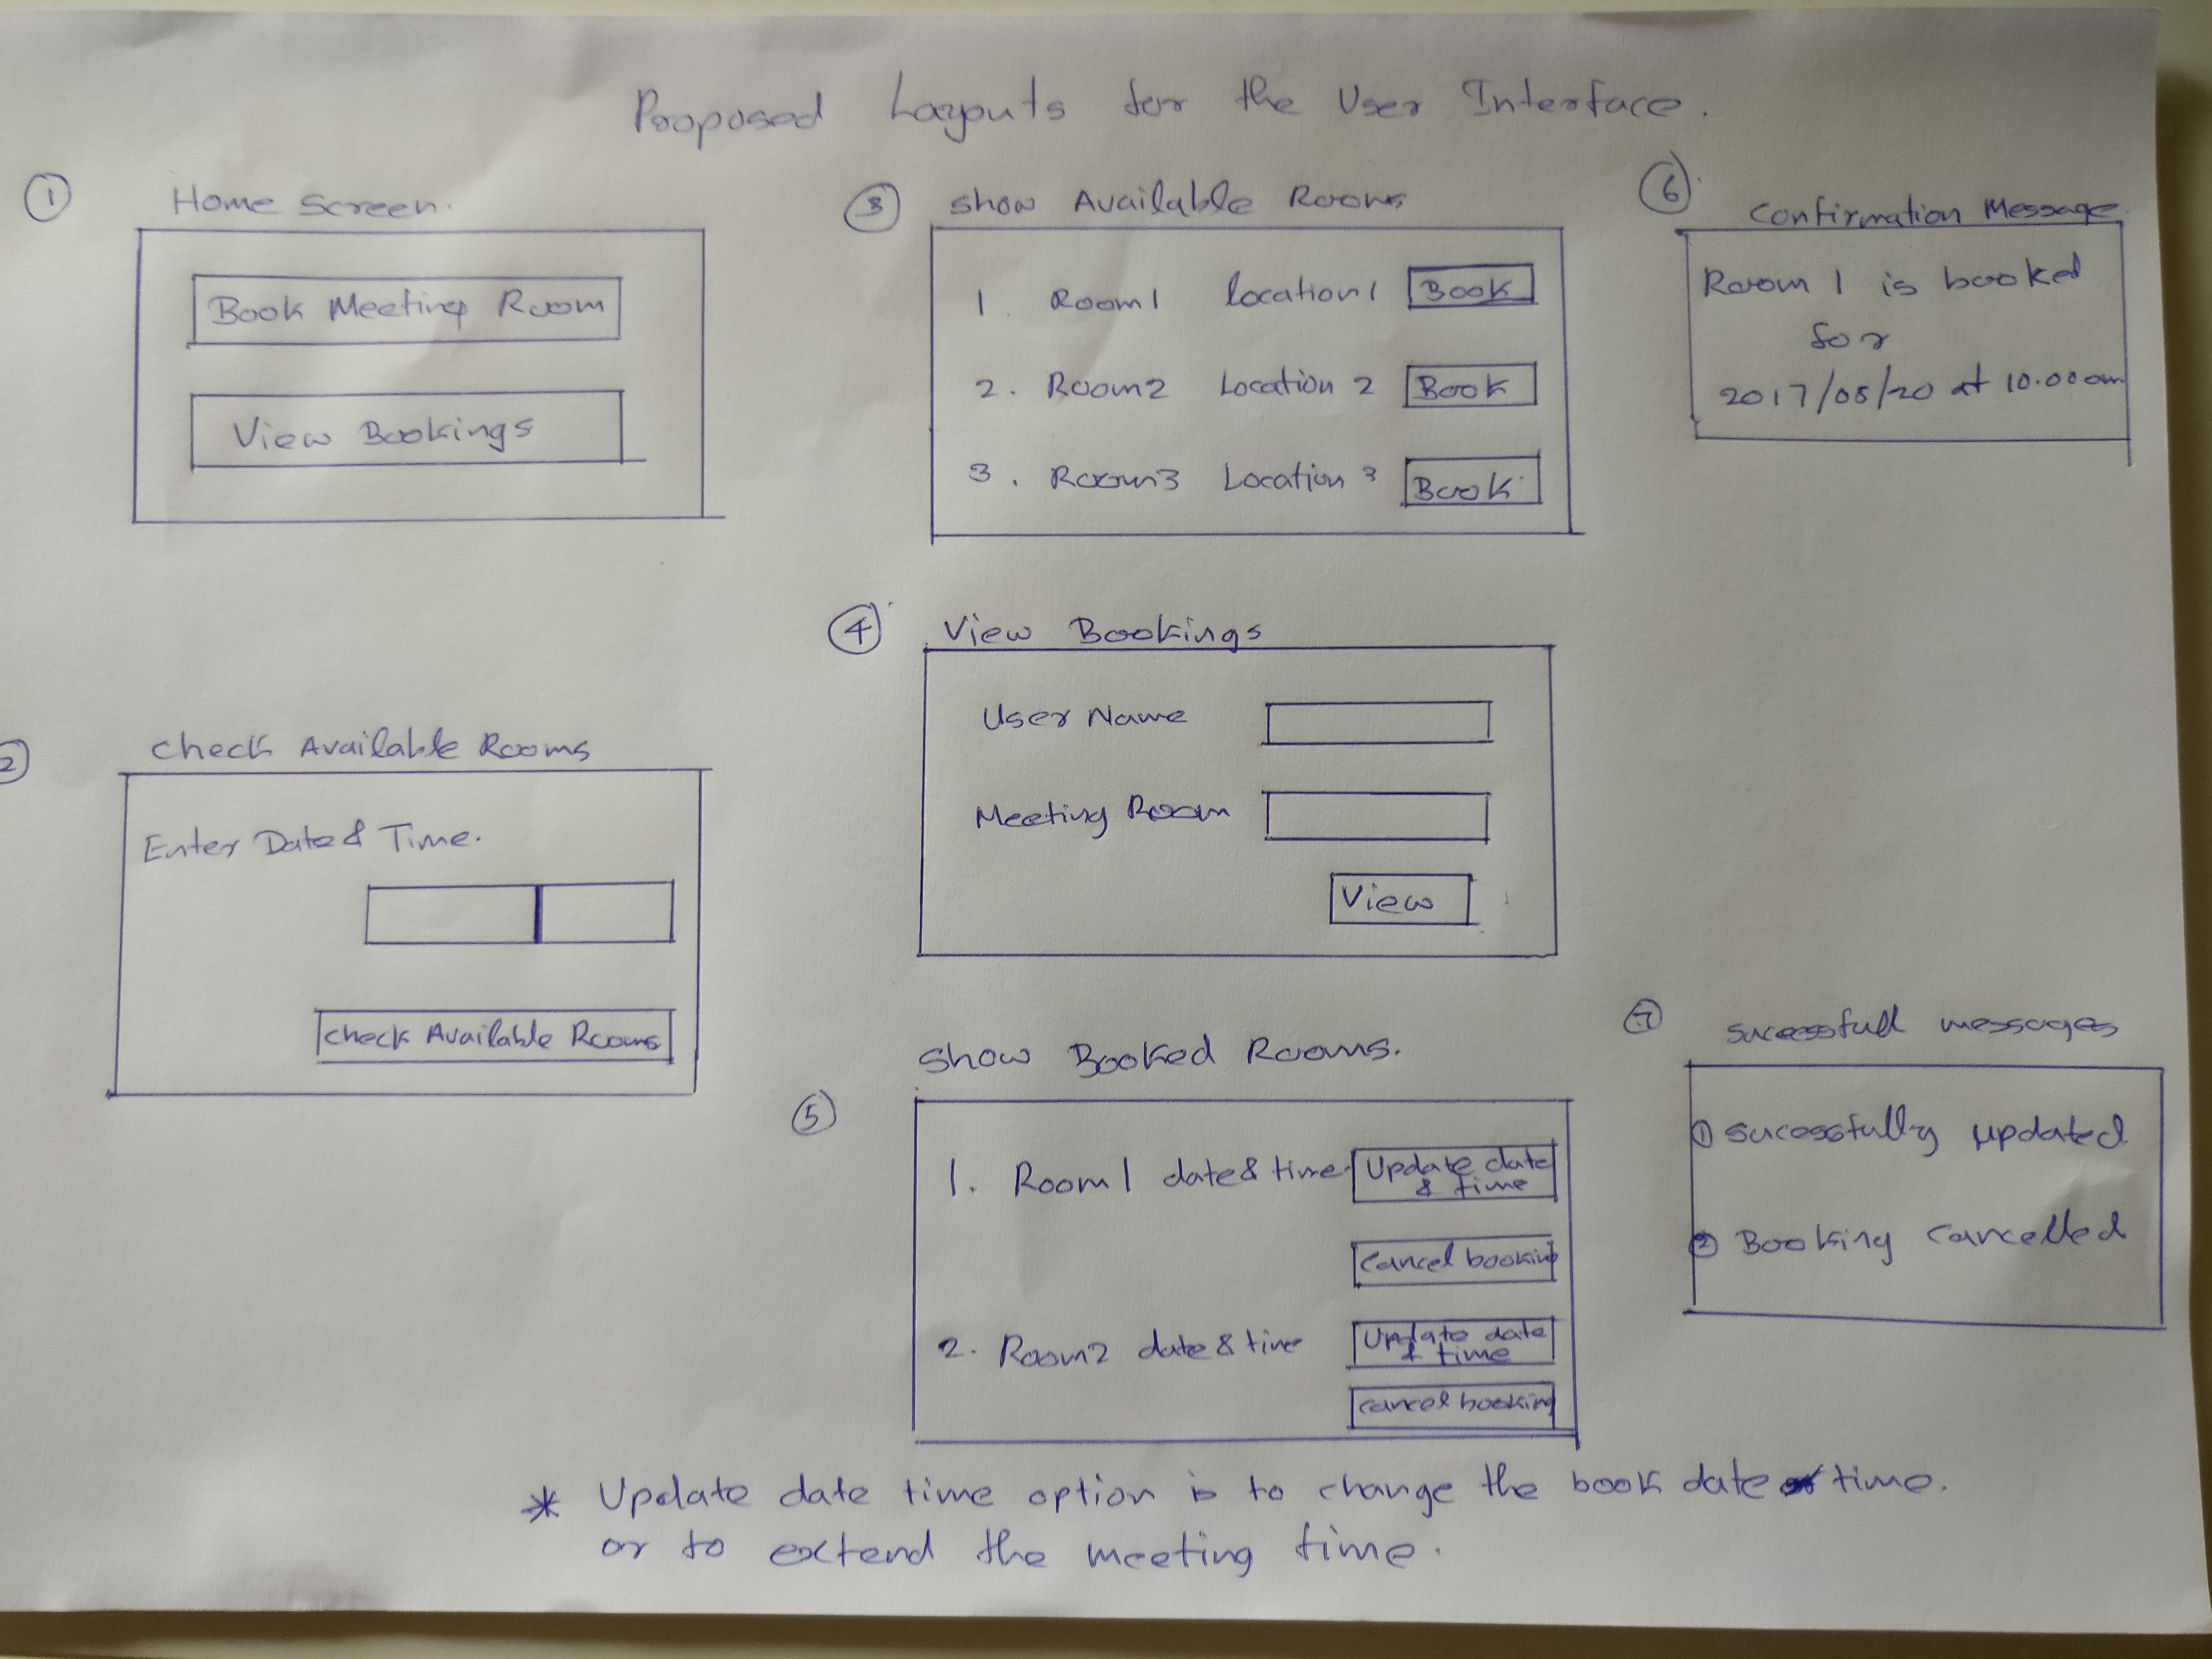 Proposed Layouts for the User Interface.
1 Home Screen.
Book Meeting Room
View Bookings
2 check Available Rooms
Enter Date & Time.
check Available Rooms
3 show Available Rooms
1. Room1 location1 Book
2. Room2 Location 2 Book
3. Room3 Location 3 Book
4 View Bookings
User Name
Meeting Room
View
show Booked Rooms.
5
1. Room1 date & time Update date
& time
cancel booking
2. Room2 date & time Update date
& time
cancel booking
6 Confirmation Message
Room 1 is booked
for
2017/05/20 at 10.00am
7 sucessfull messages
1 sucessfully updated
2 Booking cancelled
* Update date time option is to change the book date time.
or to extend the meeting time.